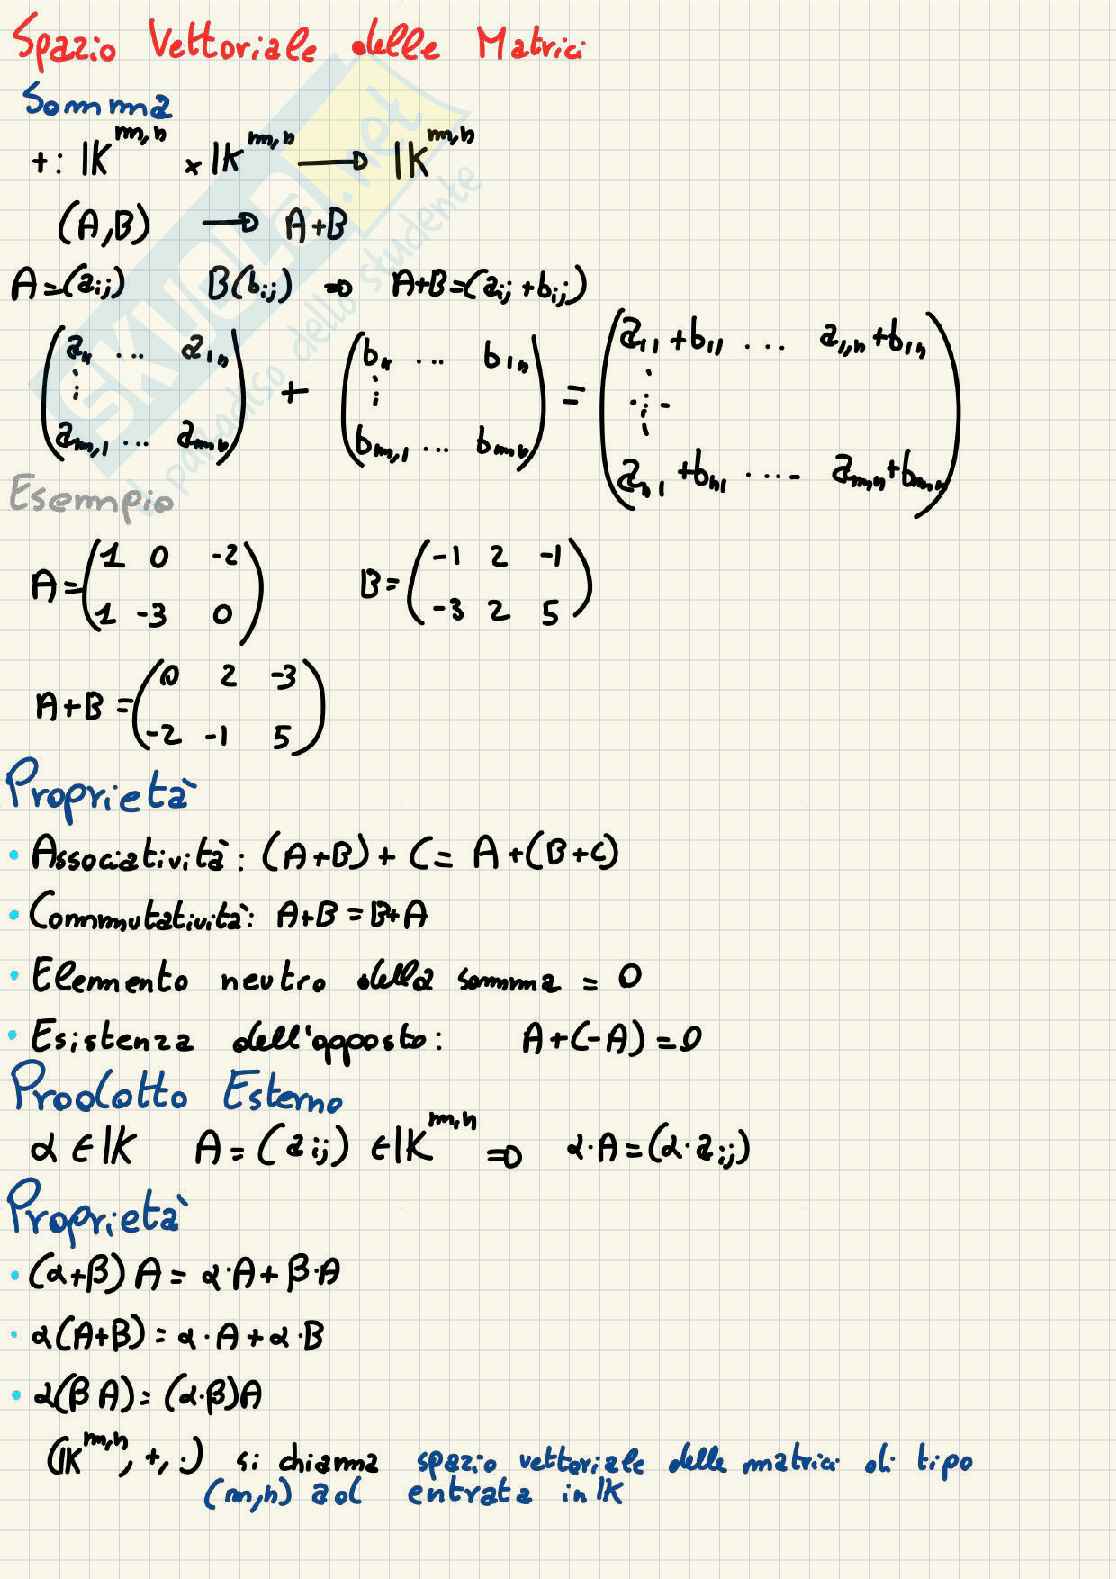 Spazio Vettoriale delle Matrici
Somma
+: IK^{m,n} × IK^{m,n} → IK^{m,n}
(A,B) → A+B
A=(a_{ij})   B(b_{ij}) ⇒ A+B=(a_{ij}+b_{ij})
(a_{11} ... a_{1n}   (b_{11} ... b_{1n}   (a_{11}+b_{11} ... a_{1,n}+b_{1n}
⋮ + ⋮ = ⋮
a_{m,1} ... a_{mn})   b_{m,1} ... b_{mn})   a_{n1}+b_{n1} ... a_{m,n}+b_{m,n})
Esempio
A=(1 0 -2   B=(-1 2 -1
1 -3 0)   -3 2 5)
A+B=(0 2 -3
-2 -1 5)
Proprietà
• Associatività: (A+B)+C=A+(B+C)
• Commutatività: A+B=B+A
• Elemento neutro della somma = 0
• Esistenza dell'opposto: A+(-A)=0
Prodotto Esterno
α∈IK A=(a_{ij})∈IK^{m,n} ⇒ α·A=(α·a_{ij})
Proprietà
• (α+β)A=α·A+β·A
• α(A+B)=α·A+α·B
• α(βA)=(α·β)A
(IK^{m,n}, +, ·) si chiama spazio vettoriale delle matrici di tipo
(m,n) ad entrata in IK
SKUOLA.net
il paradiso dello studente